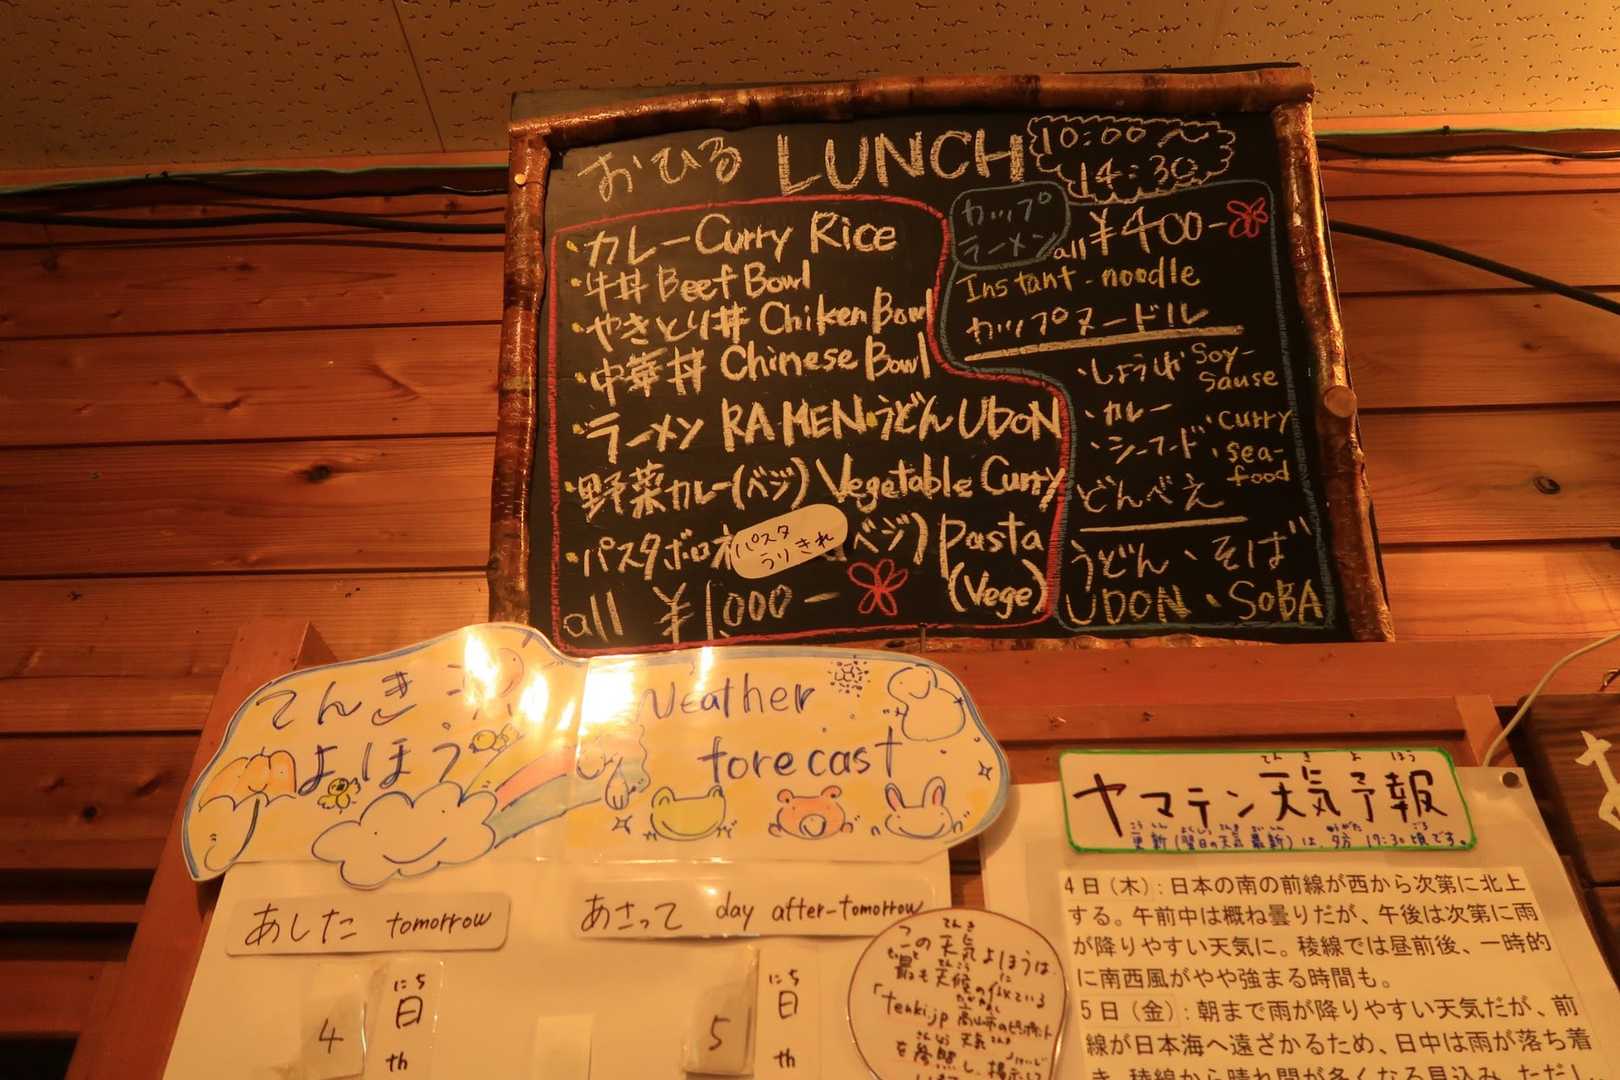 おひる LUNCH 10:00〜
14:30
・カレー Curry Rice
・牛丼 Beef Bowl
・やきとり丼 Chiken Bowl
・中華丼 Chinese Bowl
・ラーメン RAMEN・うどん UDON
・野菜カレー(ベジ) Vegetable Curry
・パスタボロネ
パスタ
うりきれ
(ベジ) Pasta
(Vege)
all ¥1,000-
カップ
ラーメン all ¥400-
Instant-noodle
カップヌードル
・しょうゆ Soy-
Sause
・カレー ・Curry
・シーフード ・sea-
food
どんべえ
うどん、そば
UDON・SOBA
てんき
よほう
Weather
forecast
あした tomorrow
あさって day after-tomorrow
4 にち
日
th
5 にち
日
th
この天気よほうは
てんき
最も天候の似ている
「tenki.jp
てんき よほう
ヤマテン天気予報
更新(翌日の天気最新)は、夕方 17:30頃です。
4日(木):日本の南の前線が西から次第に北上
する。午前中は概ね曇りだが、午後は次第に雨
が降りやすい天気に。稜線では昼前後、一時的
に南西風がやや強まる時間も。
5日(金):朝まで雨が降りやすい天気だが、前
線が日本海へ遠ざかるため、日中は雨が落ち着
き、稜線から晴れ間が多くなる見込み。ただし、